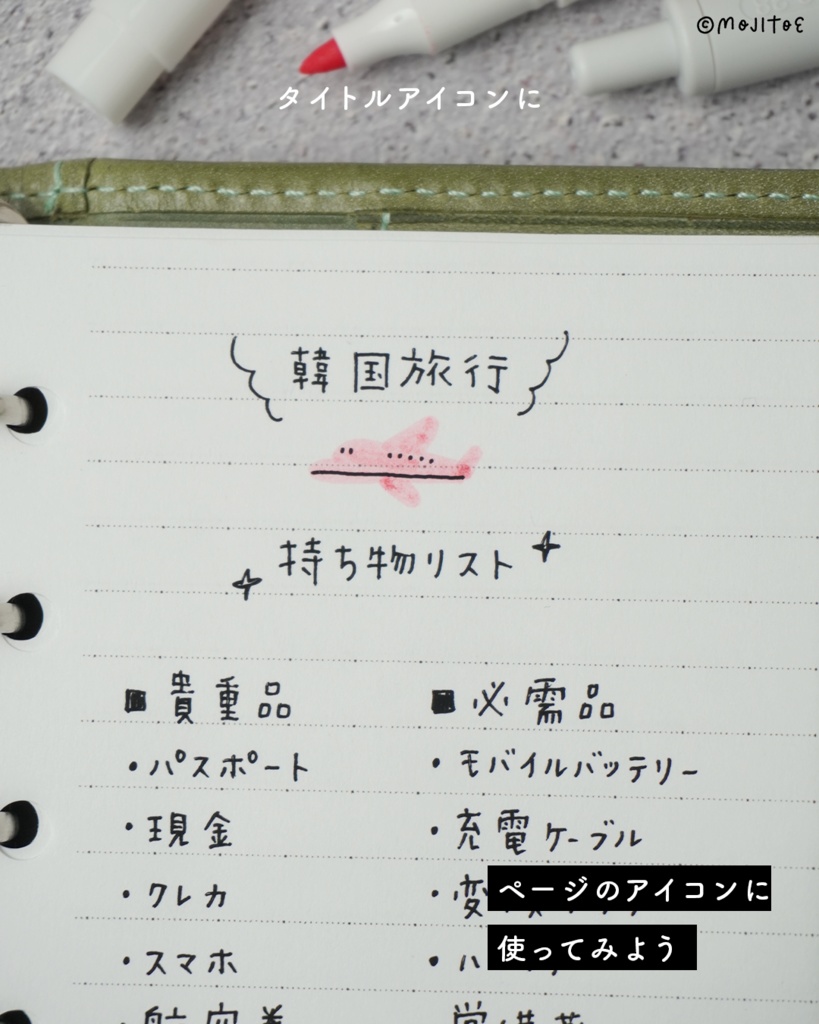 ©MOJITOE
タイトルアイコンに
韓国旅行
持ち物リスト
■貴重品
・パスポート
・現金
・クレカ
・スマホ
■必需品
・モバイルバッテリー
・充電ケーブル
・変
・ハ
ページのアイコンに
使ってみよう